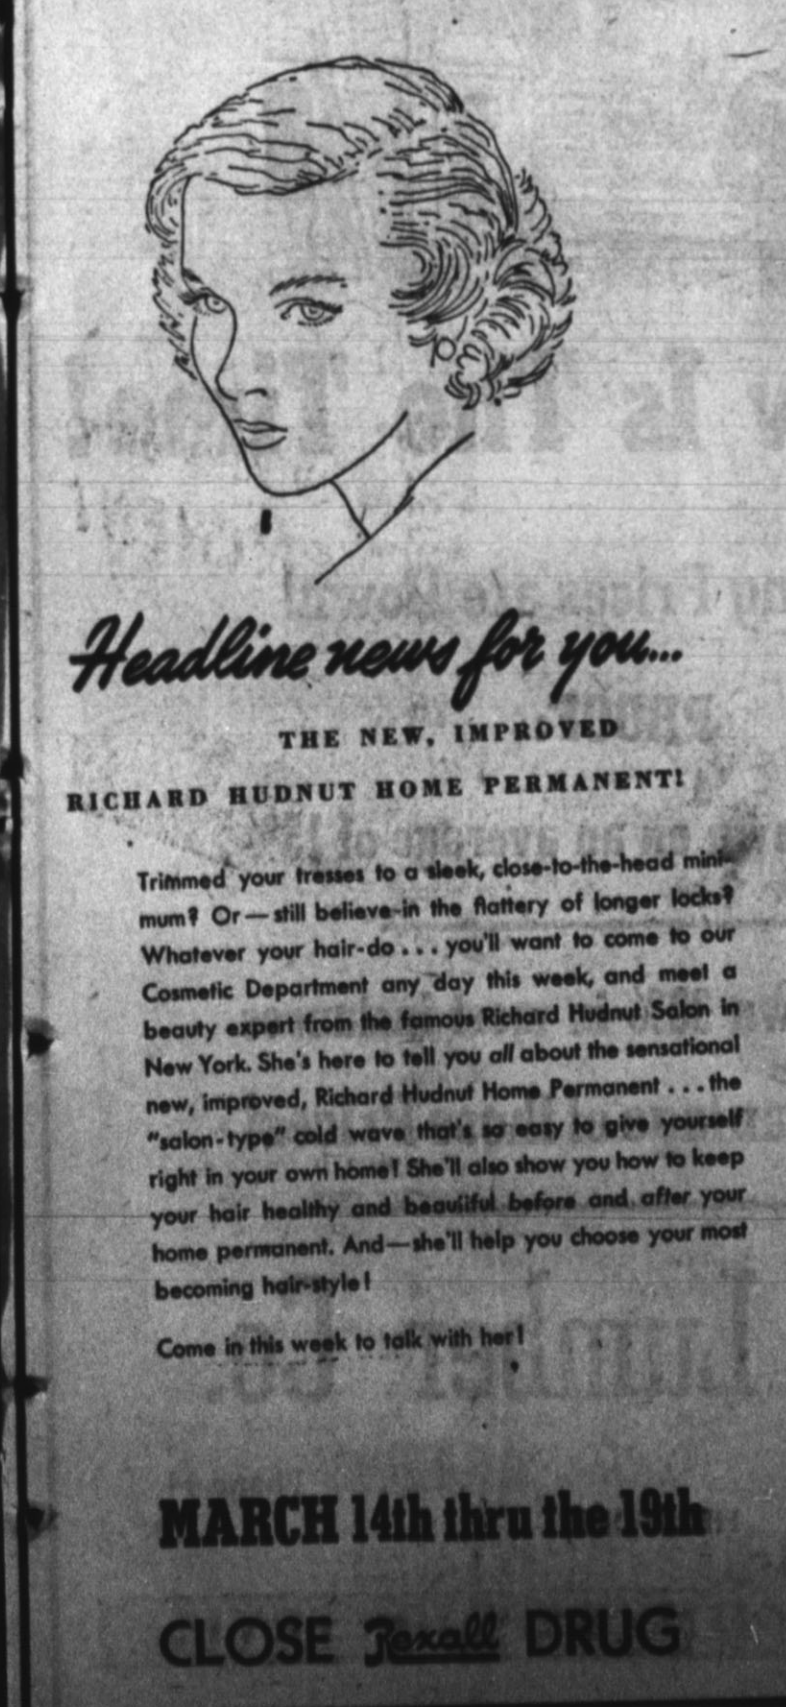 Headline news for you...
THE NEW, IMPROVED
RICHARD HUDNUT HOME PERMANENT!
Trimmed your tresses to a sleek, close-to-the-head mini-
mum? Or—still believe in the flattery of longer locks?
Whatever your hair-do... you'll want to come to our
Cosmetic Department any day this week, and meet a
beauty expert from the famous Richard Hudnut Salon in
New York. She's here to tell you all about the sensational
new, improved, Richard Hudnut Home Permanent...the
"salon-type" cold wave that's so easy to give yourself
right in your own home! She'll also show you how to keep
your hair healthy and beautiful before and after your
home permanent. And—she'll help you choose your most
becoming hair-style!
Come in this week to talk with her!
MARCH 14th thru the 19th
CLOSE Rexall DRUG